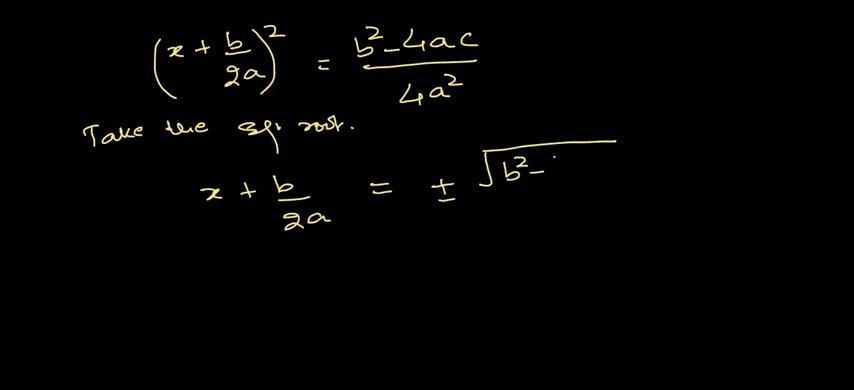 (x + b/2a)² = b² - 4ac / 4a²
Take the sq. root.
x + b/2a = ± √b² -